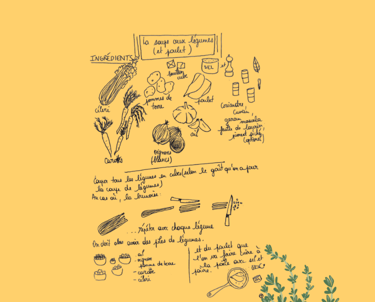 la soupe aux légumes
(et poulet)
INGRÉDIENTS
bouillon
cube
SEL
céleri
pommes de
terre
poulet
ail
oignons
(blancs)
carotte
Coriandre,
Cumin,
garam massala,
feuille de laurier,
piment
(optionel)
Couper tous les légumes en cubes (selon le goût qu'on a pour
la coupe de légumes)
Au cas où, la brunoise :
... répéter aux chaque légume
On doit donc avoir des piles de légumes.
- ail
- oignon
- pomme de terre
- carotte
- céleri
et du poulet que
l'on va faire cuire à
la poêle au sel et
poivre.